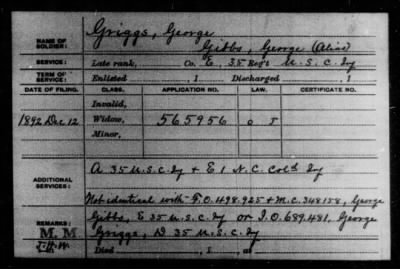 Griggs, George
NAME OF SOLDIER:
Gibbs, George (Alias)
SERVICE: Late rank, Co. E, 35 Reg't U.S.C. Iny
TERM OF SERVICE: Enlisted , 1 Discharged , 1
DATE OF FILING. CLASS. APPLICATION NO. LAW. CERTIFICATE NO.
Invalid,
1892 Dec 12 Widow, 565956 O J
Minor,
ADDITIONAL SERVICES: A 35 U.S.C. Iny + E 1 N.C. Cold Iny
Not identical with F.O. 498.925 + M.C. 348158, George
REMARKS: Gibbs, E 35 U.S.C. Iny or I.O. 689.481, George
M. M Griggs, D 35 U.S.C. Iny
Died , 1 , at